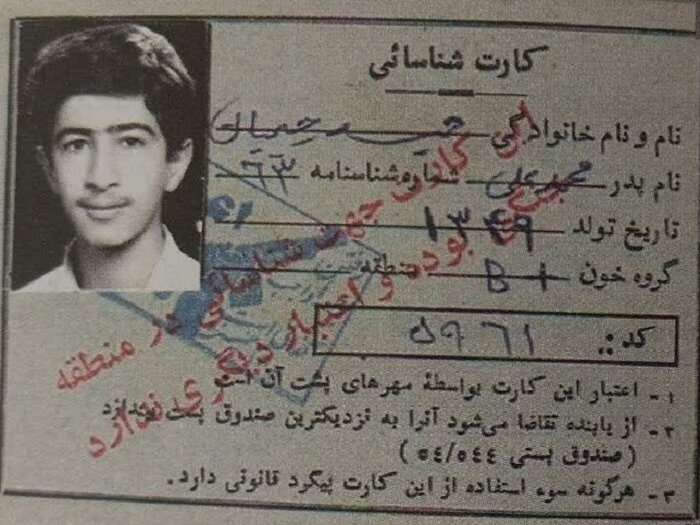 کارت شناسائی
نام و نام خانوادگی حمید
نام پدر محمدعلی شماره شناسنامه ۶۳
تاریخ تولد ۱۳۴۹
گروه خون B + منطقه
کد :. ۵۹۶۱
۱ - اعتبار این کارت بواسطهٔ مهرهای پشت آن است
۲ - از یابنده تقاضا می‌شود آنرا به نزدیکترین صندوق پست بیندازد
( صندوق پستی ۵۴/۵۴۴ )
۳ - هرگونه سوء استفاده از این کارت پیگرد قانونی دارد .
این کارت جهت شناسائی در منطقه
بوده و اعتبار دیگری ندارد